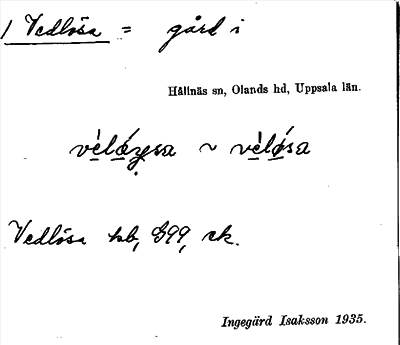 1 Vedlösa = gård i
Hållnäs sn, Olands hd, Uppsala län.
~
Vedlösa hb, 899, sk.
Ingegärd Isaksson 1935.